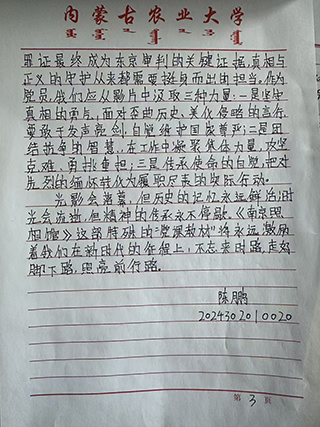 内蒙古农业大学
罪证最终成为东京审判的关键证据,真相与
正义的守护从来都需要挺身而出的担当。作为
党员,我们应从影片中汲取三种力量:一是坚守
真相的勇气,面对歪曲历史、美化侵略的言行,
要敢于发声亮剑,自觉维护国家尊严;二是团
结抗争的智慧,在工作中凝聚集体力量,攻坚
克难、勇挑重担;三是传承使命的自觉,把对
先烈的缅怀转化为履职尽责的实际行动。
光影会落幕,但历史的记忆永远鲜活;时
光会流逝,但精神的传承永不停歇。《南京照
相馆》这部特殊的“党课教材”将永远激励
着我们在新时代的征程上,不忘来时路,走好
脚下路,照亮前行路。
陈鹏
2024302010020
第 3 页